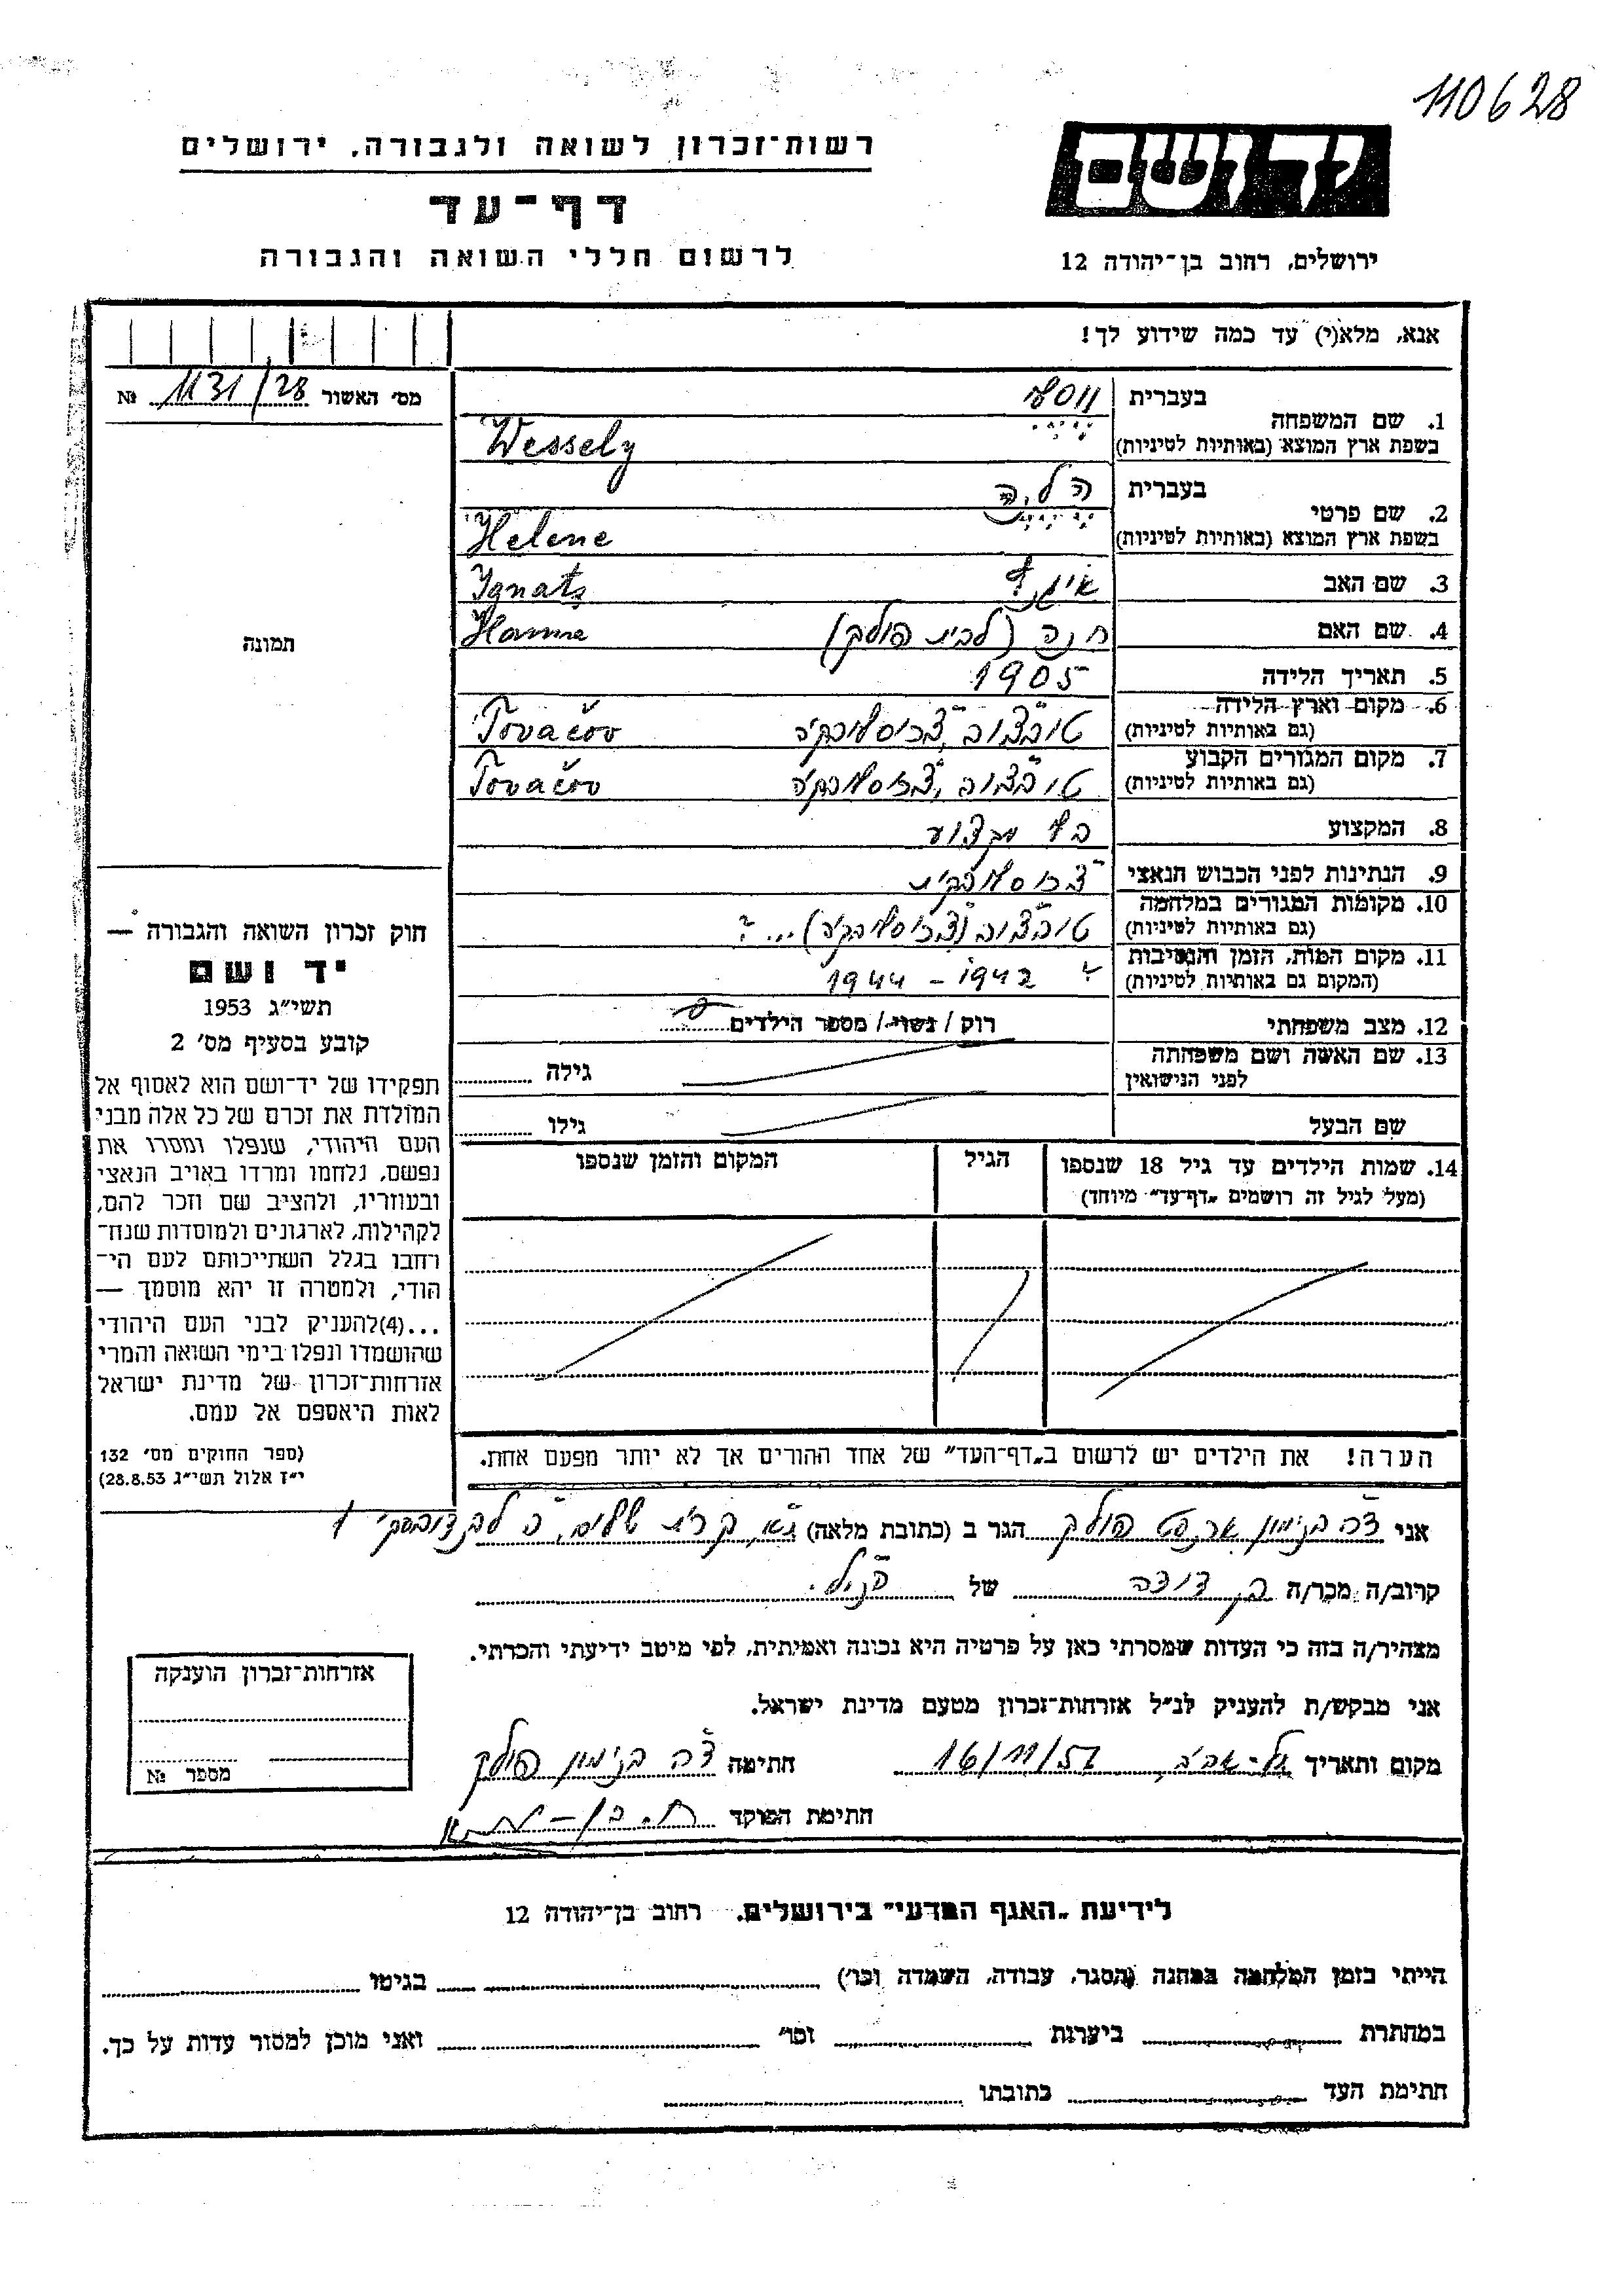 110628
רשות־זכרון לשואה ולגבורה, ירושלים
דף־עד
לרשום חללי השואה והגבורה
יד ושם
ירושלים, רחוב בן־יהודה 12
אנא, מלא(י) עד כמה שידוע לך!
מס׳ האשור 1131/28 №
תמונה
1. שם המשפחה
בעברית
בשפת ארץ המוצא (באותיות לטיניות) Wessely
2. שם פרטי
בעברית הלנה
בשפת ארץ המוצא (באותיות לטיניות) Helene
3. שם האב Ignatz
4. שם האם חנה (לבית פולק) Hanna
5. תאריך הלידה 1905
6. מקום וארץ הלידה
(גם באותיות לטיניות) טובצוב, צ׳כוסלובקיה Tovačov
7. מקום המגורים הקבוע
(גם באותיות לטיניות) טובצוב, צ׳כוסלובקיה Tovačov
8. המקצוע בעל מקצוע
9. הנתינות לפני הכבוש הנאצי צ׳כוסלובקית
10. מקומות המגורים במלחמה
(גם באותיות לטיניות) טובצוב (צ׳כוסלובקיה)...?
11. מקום המות, הזמן והנסיבות
(המקום גם באותיות לטיניות) ? 1942 – 1944
12. מצב משפחתי רוק / נשוי / מספר הילדים
13. שם האשה ושם משפחתה
לפני הנישואין גילה
שם הבעל גילו
14. שמות הילדים עד גיל 18 שנספו
(מעל לגיל זה רושמים „דף־עד״ מיוחד)
הגיל
המקום והזמן שנספו
חוק זכרון השואה והגבורה —
יד ושם
תשי״ג 1953
קובע בסעיף מס׳ 2
תפקידו של יד־ושם הוא לאסוף אל
המולדת את זכרם של כל אלה מבני
העם היהודי, שנפלו ומסרו את
נפשם, נלחמו ומרדו באויב הנאצי
ובעוזריו, ולהציב שם וזכר להם,
לקהילות, לארגונים ולמוסדות שנח־
רחבו בגלל השתייכותם לעם הי־
הודי, ולמטרה זו יהא מוסמך —
...(4)להעניק לבני העם היהודי
שהושמדו ונפלו בימי השואה והמרי
אזרחות־זכרון של מדינת ישראל
לאות היאספם אל עמם.
(ספר החוקים מס׳ 132
י״ז אלול תשי״ג 28.8.53)
הערה! את הילדים יש לרשום ב„דף־העד״ של אחד ההורים אך לא יותר מפעם אחת.
אני פולק הגר ב (כתובת מלאה) קרית שלום
קרוב/ה מכר/ה בן דודה של הנ״ל.
מצהיר/ה בזה כי העדות שמסרתי כאן על פרטיה היא נכונה ואמיתית, לפי מיטב ידיעתי והכרתי.
אני מבקש/ת להעניק לנ״ל אזרחות־זכרון מטעם מדינת ישראל.
מקום ותאריך תל-אביב 16/11/57 חתימה פולק
חתימת הפוקד
אזרחות־זכרון הוענקה
מספר №
לידיעת „האגף המדעי״ בירושלים, רחוב בן־יהודה 12
הייתי בזמן המלחמה במחנה (הסגר, עבודה, השמדה וכו׳) בגיטו
במחתרת ביערות וכו׳ ואני מוכן למסור עדות על כך.
חתימת העד כתובתו